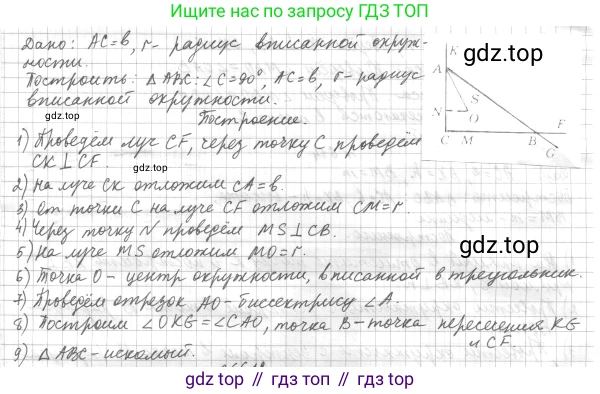 Ищите нас по запросу ГДЗ ТОП
Дано: AC=b, r- радиус вписанной окруж-
ности.
Построить: △ABC: ∠C=90°, AC=b, r-радиус
вписанной окружности.
Построение.
1) Проведём луч CF, через точку C проведём
CK⊥CF.
2) На луче CK отложим CA=b.
3) От точки C на луче CF отложим CM=r.
4) Через точку N проведём MS⊥CB.
5) На луче MS отложим MO=r.
6) Точка O- центр окружности, вписанной в треугольник.
7) Проведём отрезок AO-биссектрису ∠A.
8) Построим ∠OKG=∠CAO, точка B-точка пересечения KG
и CF.
9) △ABC-искомый.
K
gdz.top
A
S
N
O
F
C M
B
G
gdz.top
gdz.top
gdz.top
gdz.top // гдз.топ // gdz.top